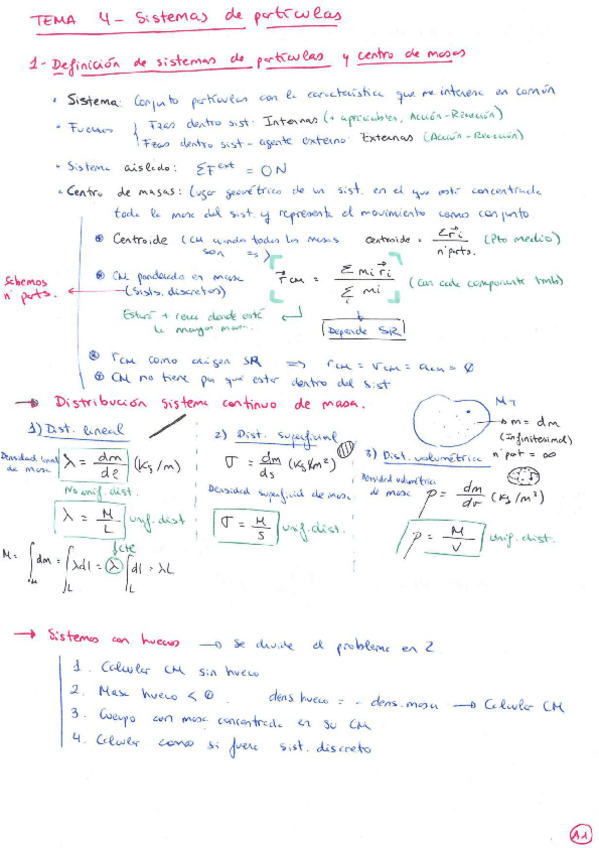 TEMA 4 - Sistemas de partículas
1- Definición de sistemas de partículas y centro de masas
· Sistema: Conjunto partículas con la característica que me interesa en común
· Fuerzas { Fzas dentro sist: Internas (+ apreciables, Acción-Reacción)
Fzas dentro sist - agente externo: Externas (Acción-Reacción)
· Sistema aislado: ΣF^ext = 0N
· Centro de masas: Lugar geométrico de un sist. en el que está concentrada
toda la masa del sist. y representa el movimiento como conjunto.
Centroide (CM cuando todas las masas son =) centroide = Σr⃗i / nºparts. (Pto medio)
Sabemos nº parts.
CM ponderado en masa (Sists. discretos) r⃗CM = Σ mi r⃗i / Σ mi (Con cada componente tmb)
Estará + cerca donde esté la mayor masa.
Depende SR
rCM como origen SR ⇒ rCM = vCM = aCM = 0
CM no tiene por qué estar dentro del sist
→ Distribución sistema continuo de masa.
M_T
m = dm
(Infinitesimal)
nº part = ∞
1) Dist. lineal
Densidad lineal de masa λ = dm/dl (Kg/m)
No unif. dist.
λ = M/L unif. dist
cte
M = ∫_M dm = ∫_L λdl = λ ∫_L dl = λL
2) Dist. superficial
σ = dm/ds (Kg/m²)
Densidad superficial de masa
σ = M/S unif. dist.
3) Dist. volumétrica
Densidad volumétrica de masa ρ = dm/dv (Kg/m³)
ρ = M/V unif. dist.
→ Sistemas con huecos → se divide el problema en 2.
1. Calcular CM sin hueco
2. Masa hueco < 0. dens. hueco = - dens. masa → Calcular CM
3. Cuerpo con masa concentrada en su CM
4. Calcular como si fuera sist. discreto
A1